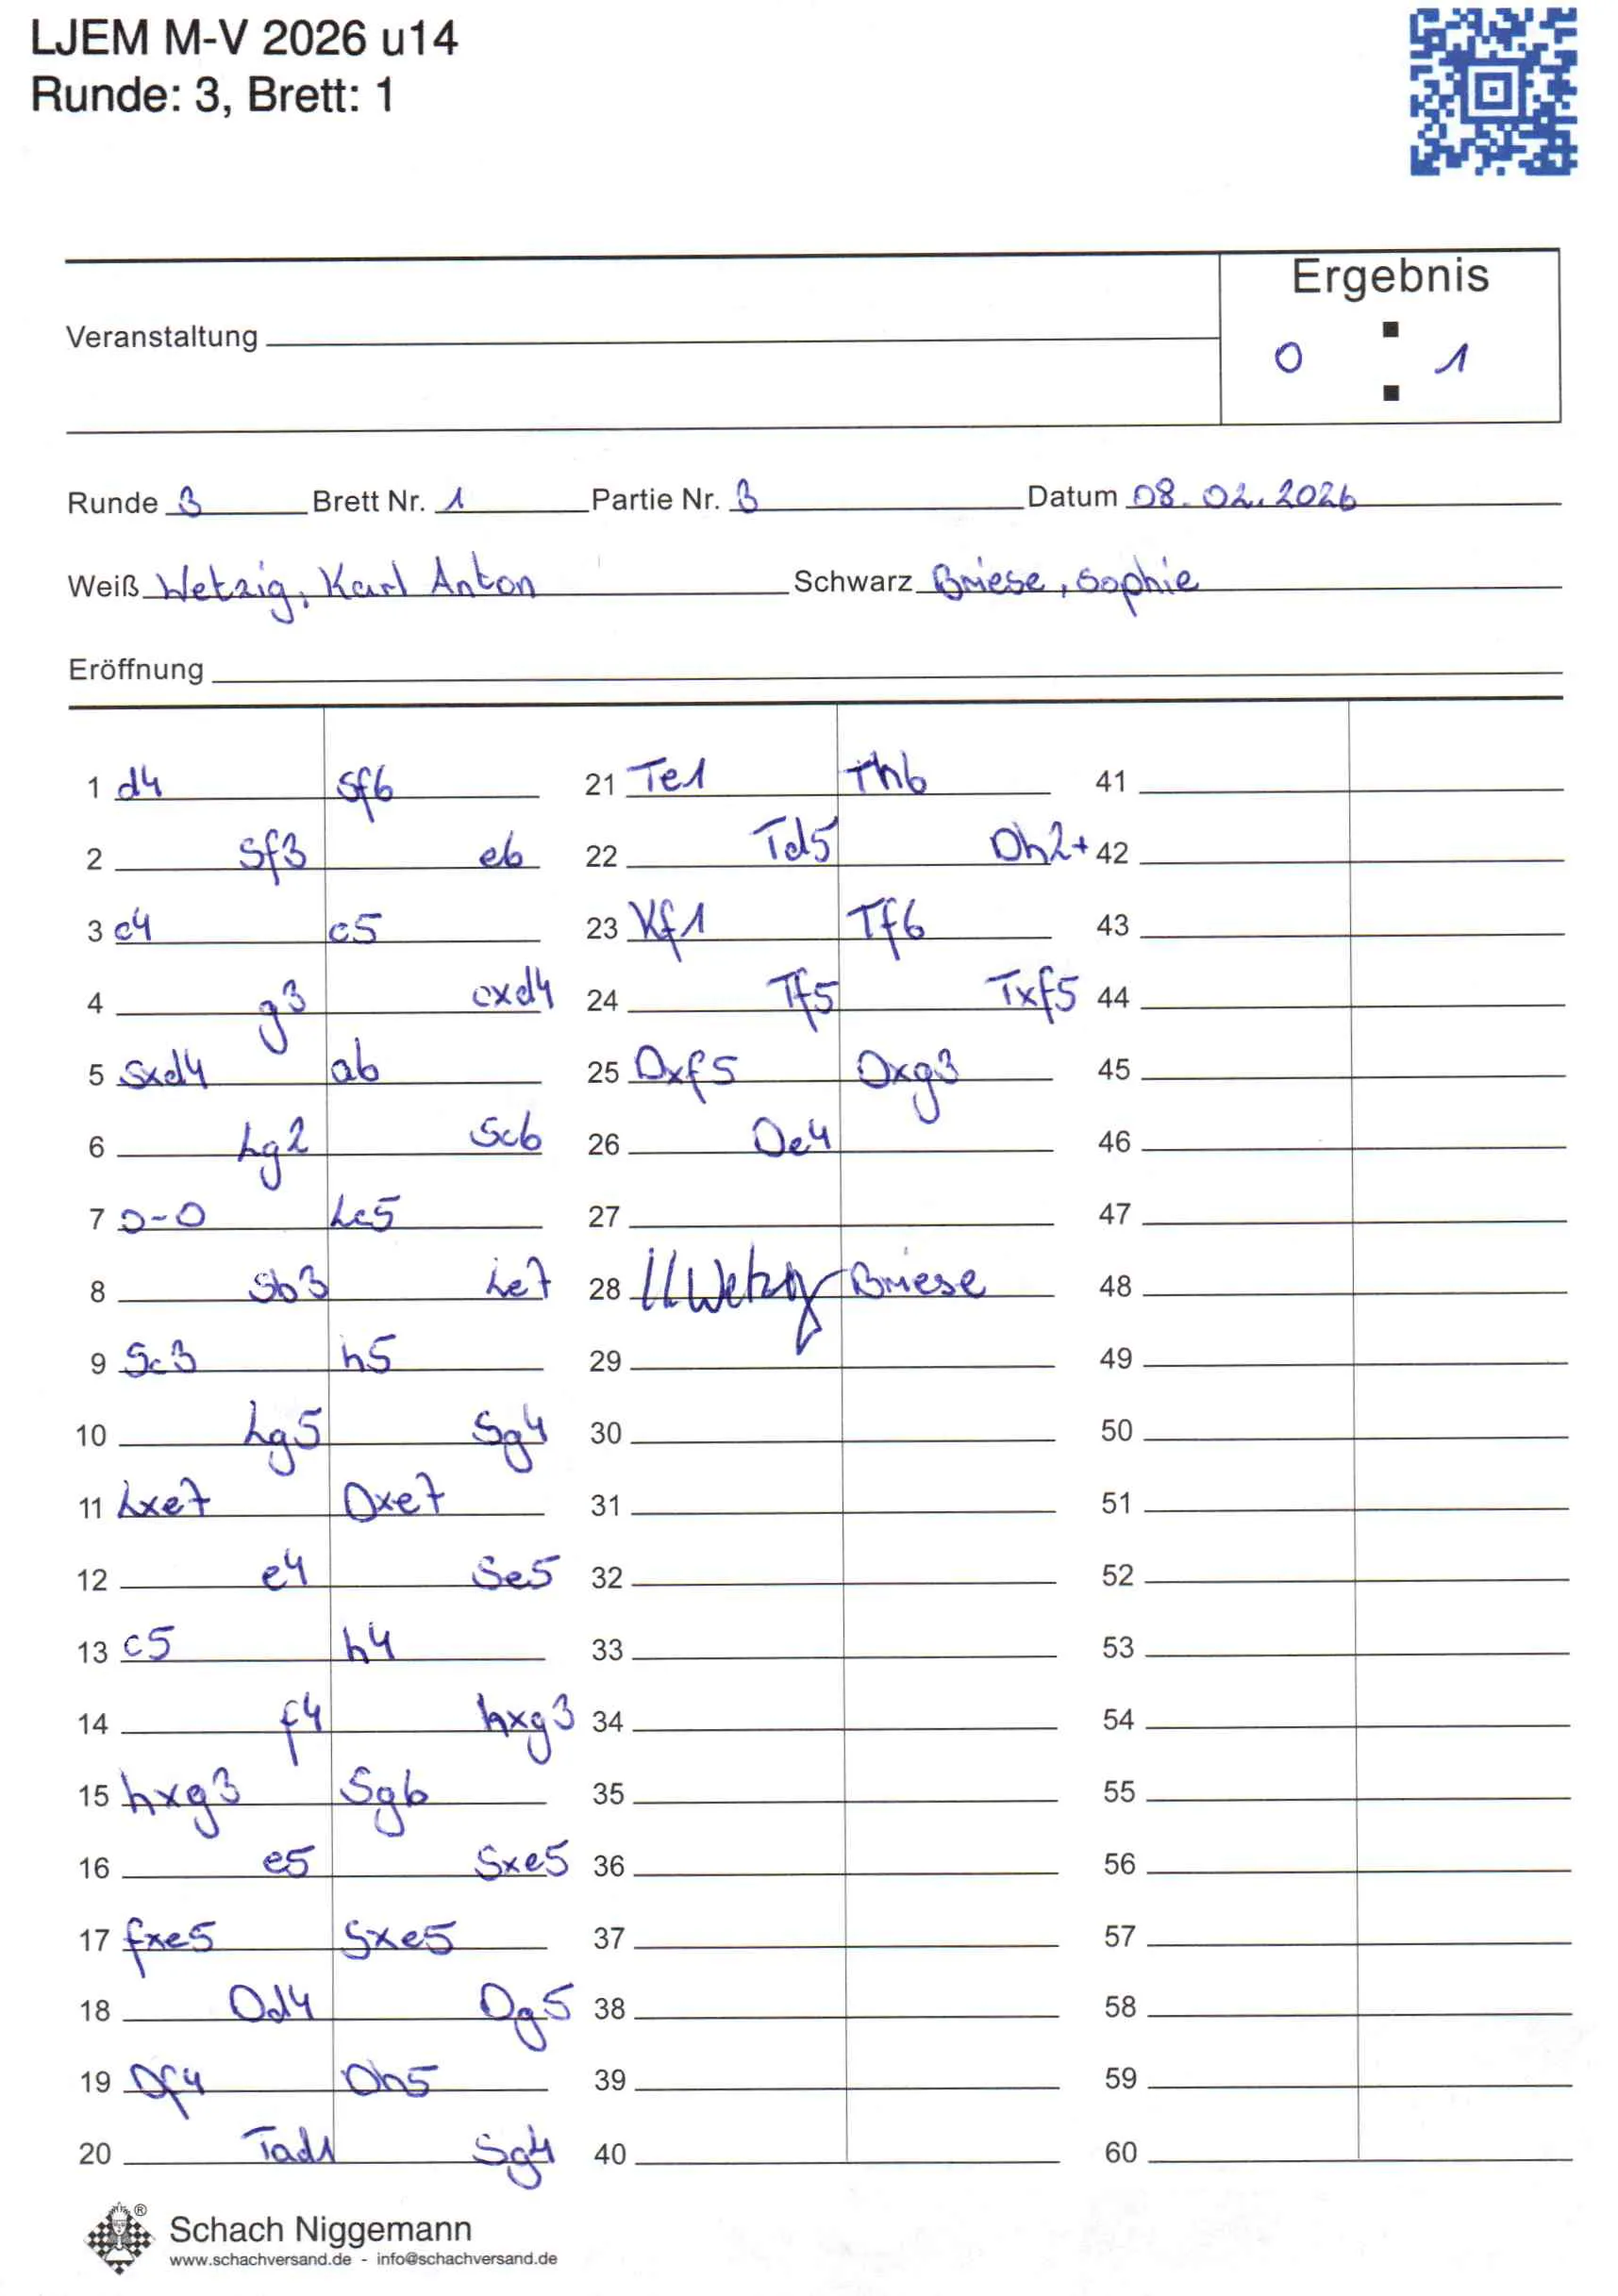 LJEM M-V 2026 u14
Runde: 3, Brett: 1
Ergebnis
Veranstaltung
0 : 1
Runde 3 Brett Nr. 1 Partie Nr. 3 Datum 08.02.2026
Weiß Wetzig, Karl Anton Schwarz Briese, Sophie
Eröffnung
1 d4 Sf6 21 Te1 Th6 41
2 Sf3 e6 22 Td5 Dh2+ 42
3 c4 c5 23 Kf1 Tf6 43
4 g3 cxd4 24 Tf5 Txf5 44
5 Sxd4 a6 25 Dxf5 Dxg3 45
6 Lg2 Sc6 26 De4 46
7 0-0 Lc5 27 47
8 Sb3 Le7 28 Wetzig Briese 48
9 Sc3 h5 29 49
10 Lg5 Sg4 30 50
11 Lxe7 Dxe7 31 51
12 e4 Se5 32 52
13 c5 h4 33 53
14 f4 hxg3 34 54
15 hxg3 Sg6 35 55
16 e5 Sxe5 36 56
17 fxe5 Sxe5 37 57
18 Dd4 Dg5 38 58
19 Df4 Dh5 39 59
20 Tad1 Sg4 40 60
®
Schach Niggemann
www.schachversand.de - info@schachversand.de